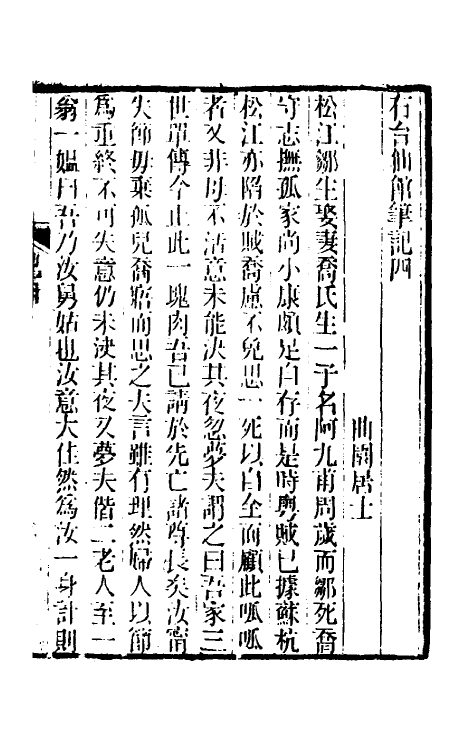 右台仙館筆記四
曲園居士
松江鄒生娶妻喬氏生一子名阿九甫周歲而鄒死喬
守志撫孤家尚小康頗足自存而是時粵賊已據蘇杭
松江亦陷於賊喬慮不免思一死以自全而顧此呱呱
者又非母不活意未能決其夜忽夢夫謂之曰吾家三
世單傳今止此一塊肉吾已請於先亡諸尊長矣汝甯
失節毋棄孤兒喬寤而思之夫言雖有理然婦人以節
為重終不可失意仍未決其夜又夢夫偕二老人至一
翁一媼曰吾乃汝舅姑也汝意大佳然為汝一身計則